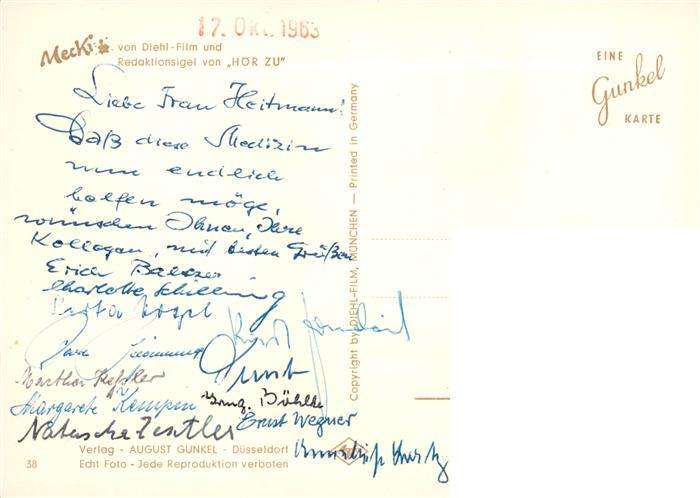 17. Okt. 1963
Mecki von Diehl-Film und
Redaktionsigel von „HÖR ZU"
EINE
Gunkel
KARTE
Liebe Frau Heitmann!
Daß diese Medizin
nun endlich
helfen möge,
wünschen Ihnen, Ihre
Kollegen, mit besten Grüßen
Erich Baltzer
Charlotte Schilling
Kurt
Ernst
Martha Keßler
Böhlke
Margarete Kempen
Ernst Wegner
Natascha Zestler
Copyright by DIEHL-FILM, MÜNCHEN — Printed in Germany
Verlag - AUGUST GUNKEL - Düsseldorf
38 Echt Foto - Jede Reproduktion verboten